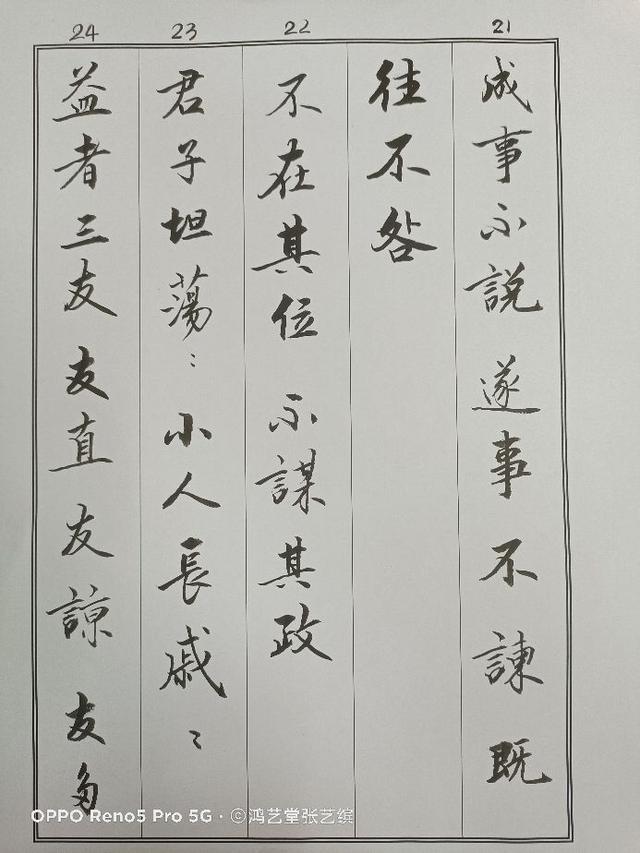 21
成事不説 遂事不諫既
往不咎
22
不在其位 不謀其政
23
君子坦蕩〻 小人長戚〻
24
益者三友 友直友諒 友多
OPPO Reno5 Pro 5G · ©鸿艺堂张艺缤